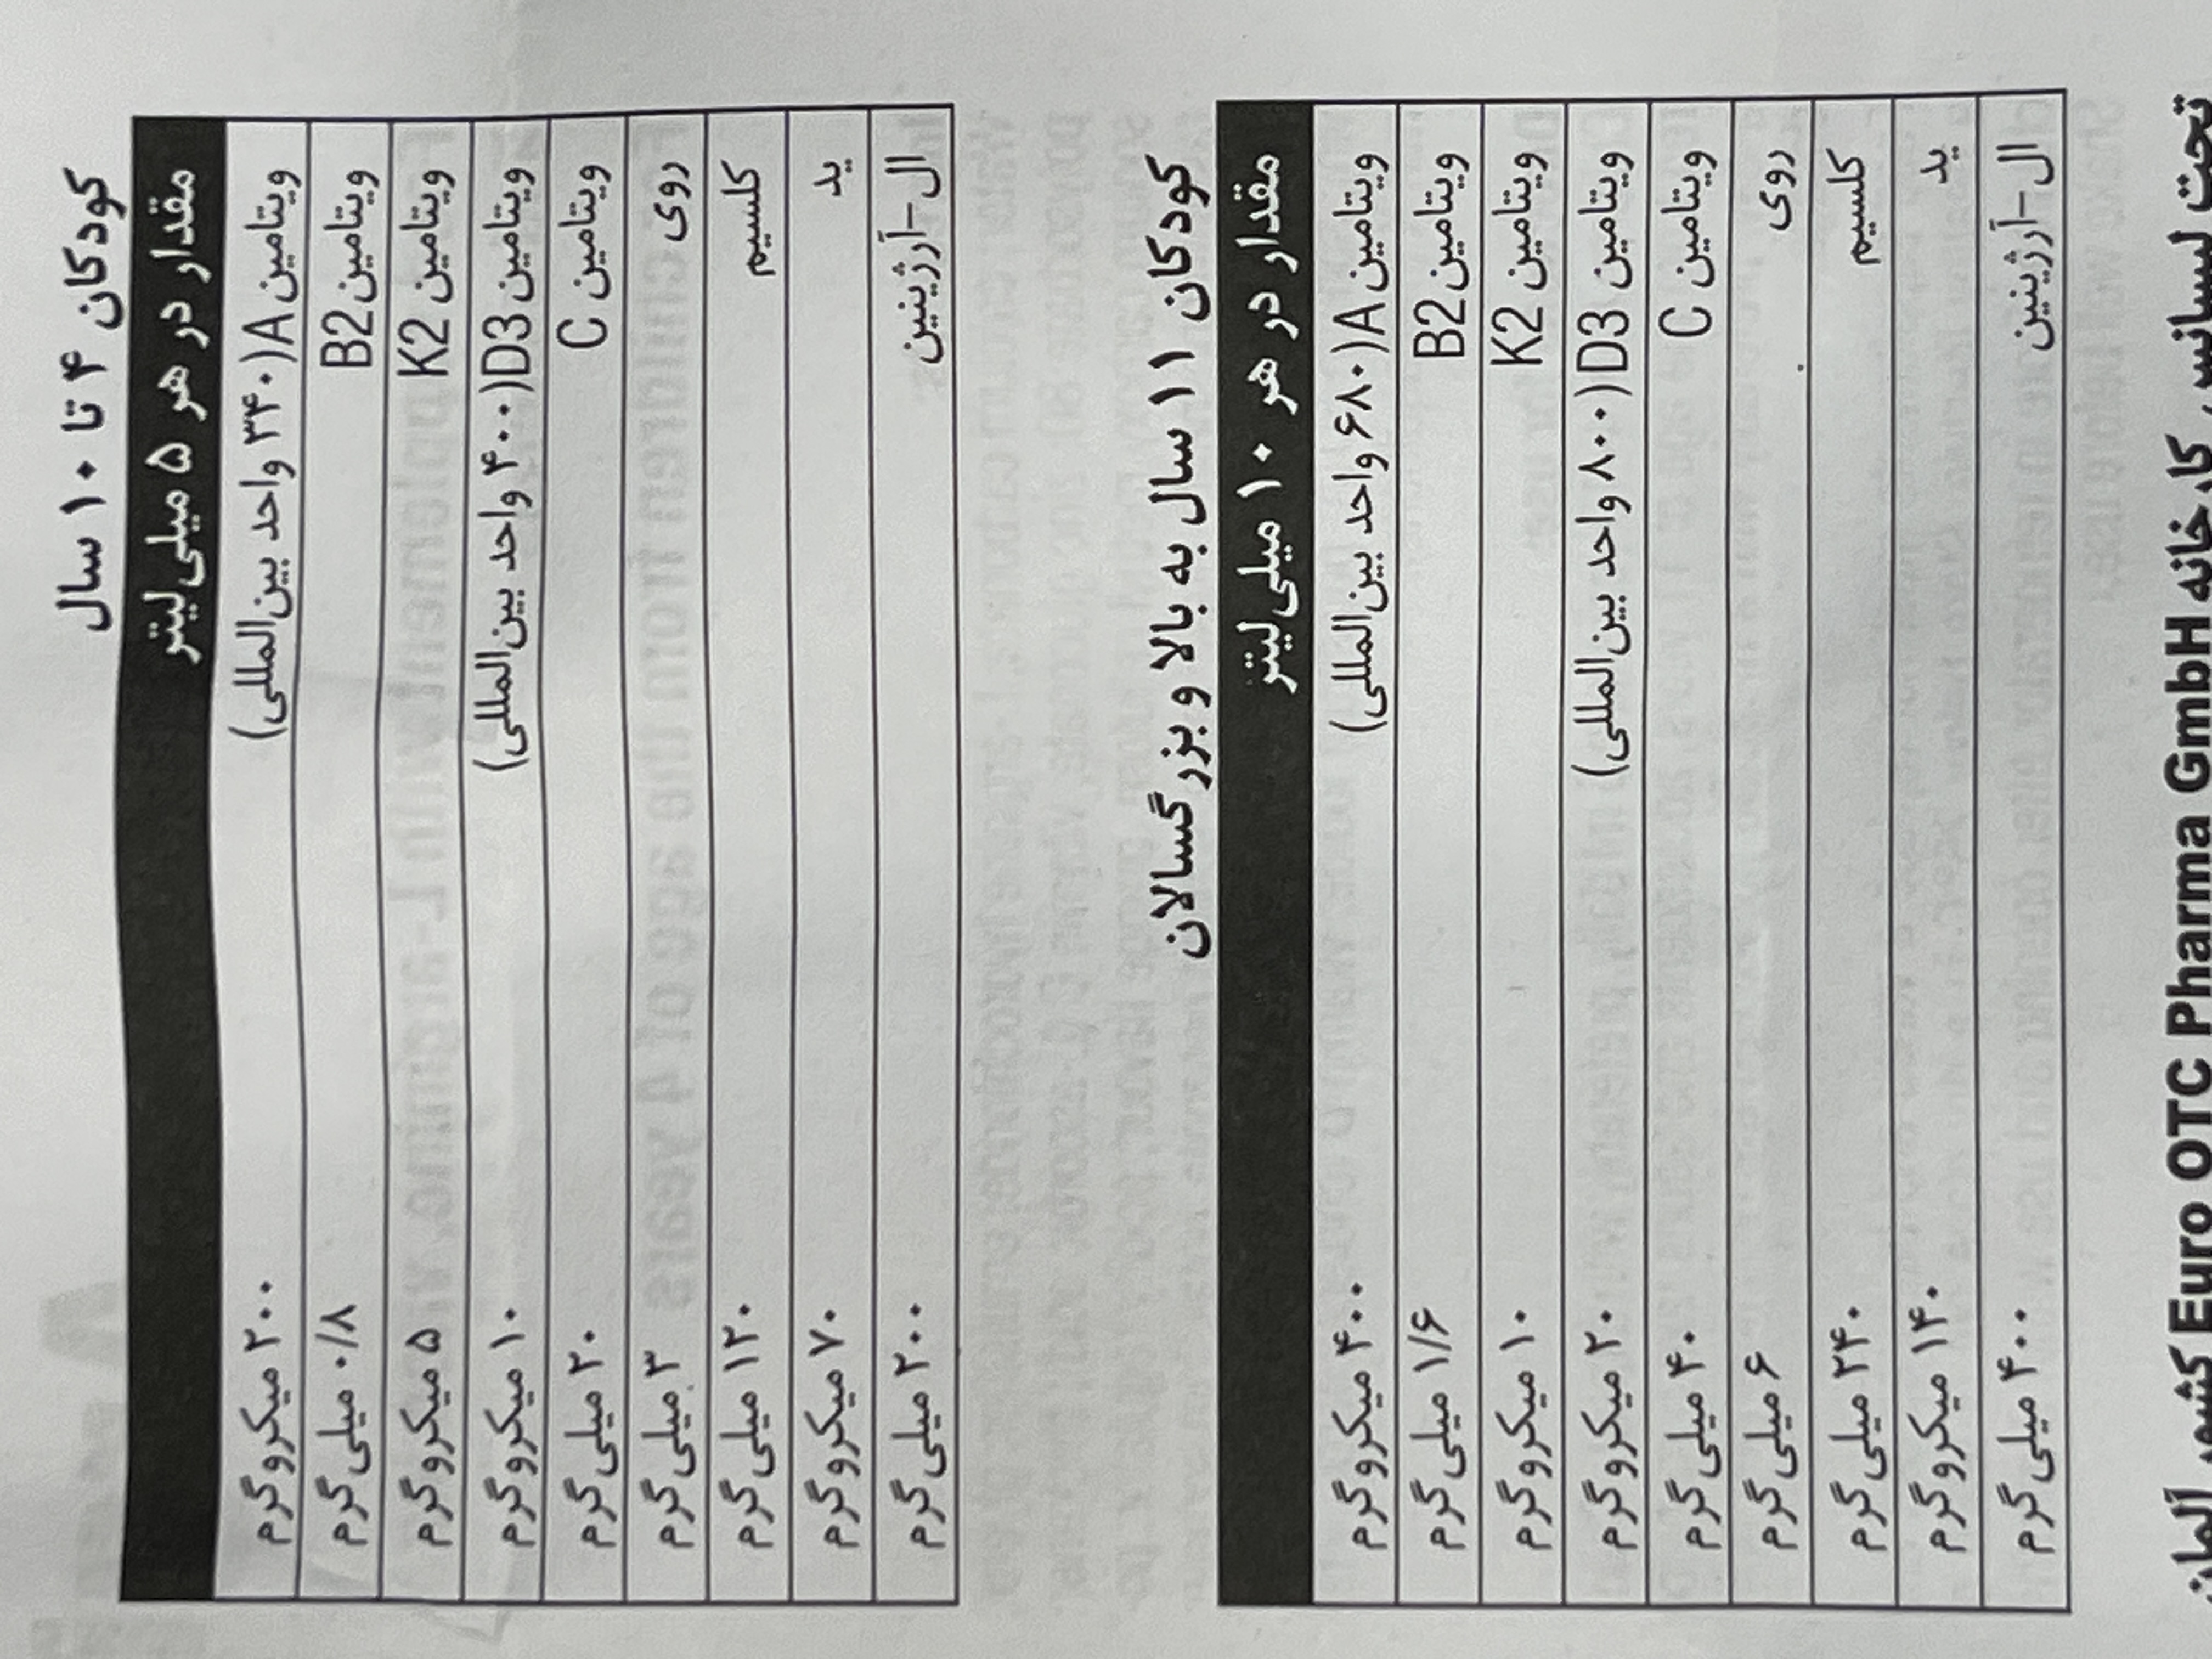 کودکان ۴ تا ۱۰ سال
مقدار در هر ۵ میلی‌لیتر
ویتامین A (۳۴۰ واحد بین‌المللی) ۲۰۰ میکروگرم
ویتامین B2 ۰/۸ میلی‌گرم
ویتامین K2 ۵ میکروگرم
ویتامین D3 (۴۰۰ واحد بین‌المللی) ۱۰ میکروگرم
ویتامین C ۲۰ میلی‌گرم
روی ۳ میلی‌گرم
کلسیم ۱۲۰ میلی‌گرم
ید ۷۰ میکروگرم
ال-آرژینین ۲۰۰ میلی‌گرم
کودکان ۱۱ سال به بالا و بزرگسالان
مقدار در هر ۱۰ میلی‌لیتر
ویتامین A (۶۸۰ واحد بین‌المللی) ۴۰۰ میکروگرم
ویتامین B2 ۱/۶ میلی‌گرم
ویتامین K2 ۱۰ میکروگرم
ویتامین D3 (۸۰۰ واحد بین‌المللی) ۲۰ میکروگرم
ویتامین C ۴۰ میلی‌گرم
روی ۶ میلی‌گرم
کلسیم ۲۴۰ میلی‌گرم
ید ۱۴۰ میکروگرم
ال-آرژینین ۴۰۰ میلی‌گرم
تحت لیسانس کارخانه Euro OTC Pharma GmbH کشور آلمان